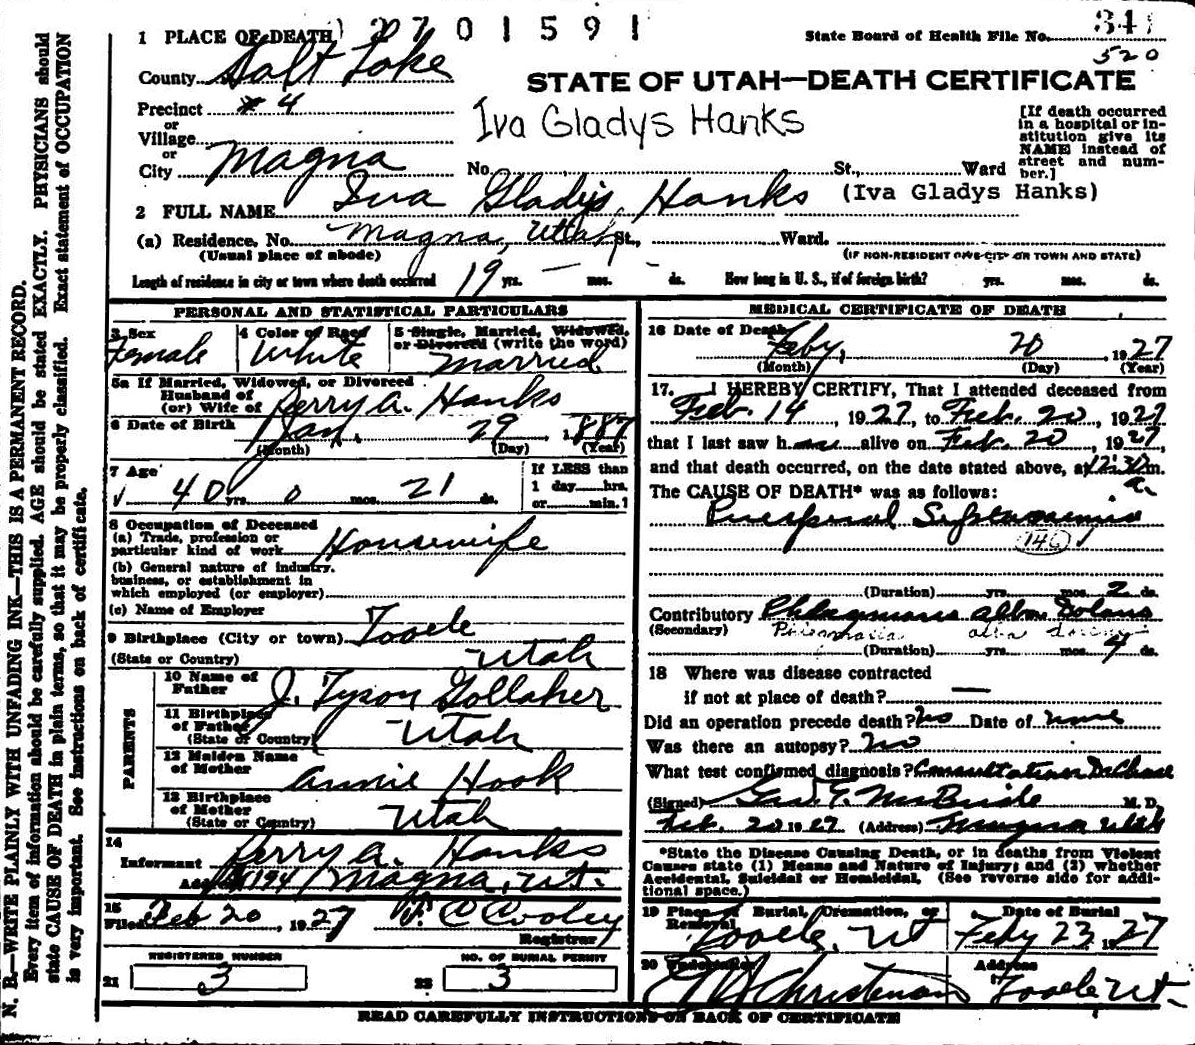 2701591
State Board of Health File No. 34
520
1 PLACE OF DEATH
County Salt Lake
STATE OF UTAH—DEATH CERTIFICATE
Precinct #4
or
Village
or
City Magna
Iva Gladys Hanks
No. St., Ward
[If death occurred
in a hospital or in-
stitution give its
NAME instead of
street and num-
ber.]
2 FULL NAME Iva Gladys Hanks (Iva Gladys Hanks)
(a) Residence, No. Magna, Utah St., Ward.
(Usual place of abode) (IF NON-RESIDENT GIVE CITY OR TOWN AND STATE)
Length of residence in city or town where death occurred 19 yrs. — mos. - ds. How long in U. S., if of foreign birth? yrs. mos. ds.
PERSONAL AND STATISTICAL PARTICULARS
3 Sex Female
4 Color of Race White
5 Single, Married, Widowed,
or Divorced (write the word)
Married
5a If Married, Widowed, or Divorced
Husband of
(or) Wife of Perry A. Hanks
6 Date of Birth Jan. 29, 1887
(Month) (Day) (Year)
7 Age 40 yrs. 0 mos. 21 ds.
If LESS than
1 day hrs.
or min.
8 Occupation of Deceased
(a) Trade, profession or
particular kind of work Housewife
(b) General nature of industry,
business, or establishment in
which employed (or employer)
(c) Name of Employer
9 Birthplace (City or town) Tooele
(State or Country) Utah
PARENTS
10 Name of
Father J. Tyson Gollaher
11 Birthplace
of Father
(State or Country) Utah
12 Maiden Name
of Mother Annie Hook
13 Birthplace
of Mother
(State or Country) Utah
14
Informant Perry A. Hanks
Address Magna, Ut.
15
Filed Feb 20, 1927 J. C. Cooley
Registrar
REGISTERED NUMBER
21 3
NO. OF BURIAL PERMIT
22 3
MEDICAL CERTIFICATE OF DEATH
16 Date of Death Feby, 20, 1927
(Month) (Day) (Year)
17. I HEREBY CERTIFY, That I attended deceased from
Feb. 14 1927, to Feb. 20, 1927
that I last saw her alive on Feb. 20, 1927,
and that death occurred, on the date stated above, at 12:30 a. m.
The CAUSE OF DEATH* was as follows:
Puerperal Septicaemia
146
(Duration) yrs. mos. 2 ds.
Contributory Phlegmasia alba Dolens
(Secondary) alba
(Duration) yrs. mos. 4 ds.
18 Where was disease contracted
if not at place of death? —
Did an operation precede death? no Date of none
Was there an autopsy? no
What test confirmed diagnosis? Consultation Dr Chase
(Signed) Geo. E. McBride M. D.
Feb. 20 1927 (Address) Magna Utah
*State the Disease Causing Death, or in deaths from Violent
Causes state (1) Means and Nature of Injury; and (2) whether
Accidental, Suicidal or Homicidal. (See reverse side for addi-
tional space.)
19 Place of Burial, Cremation, or
Removal Tooele, Ut
Date of Burial
Feby 23, 1927
20 Undertaker Christensen
Address
Tooele Ut.
READ CAREFULLY INSTRUCTIONS ON BACK OF CERTIFICATE
N. B.—WRITE PLAINLY WITH UNFADING INK—THIS IS A PERMANENT RECORD.
Every item of information should be carefully supplied. AGE should be stated EXACTLY. PHYSICIANS should
state CAUSE OF DEATH in plain terms, so that it may be properly classified. Exact statement of OCCUPATION
is very important. See instructions on back of certificate.